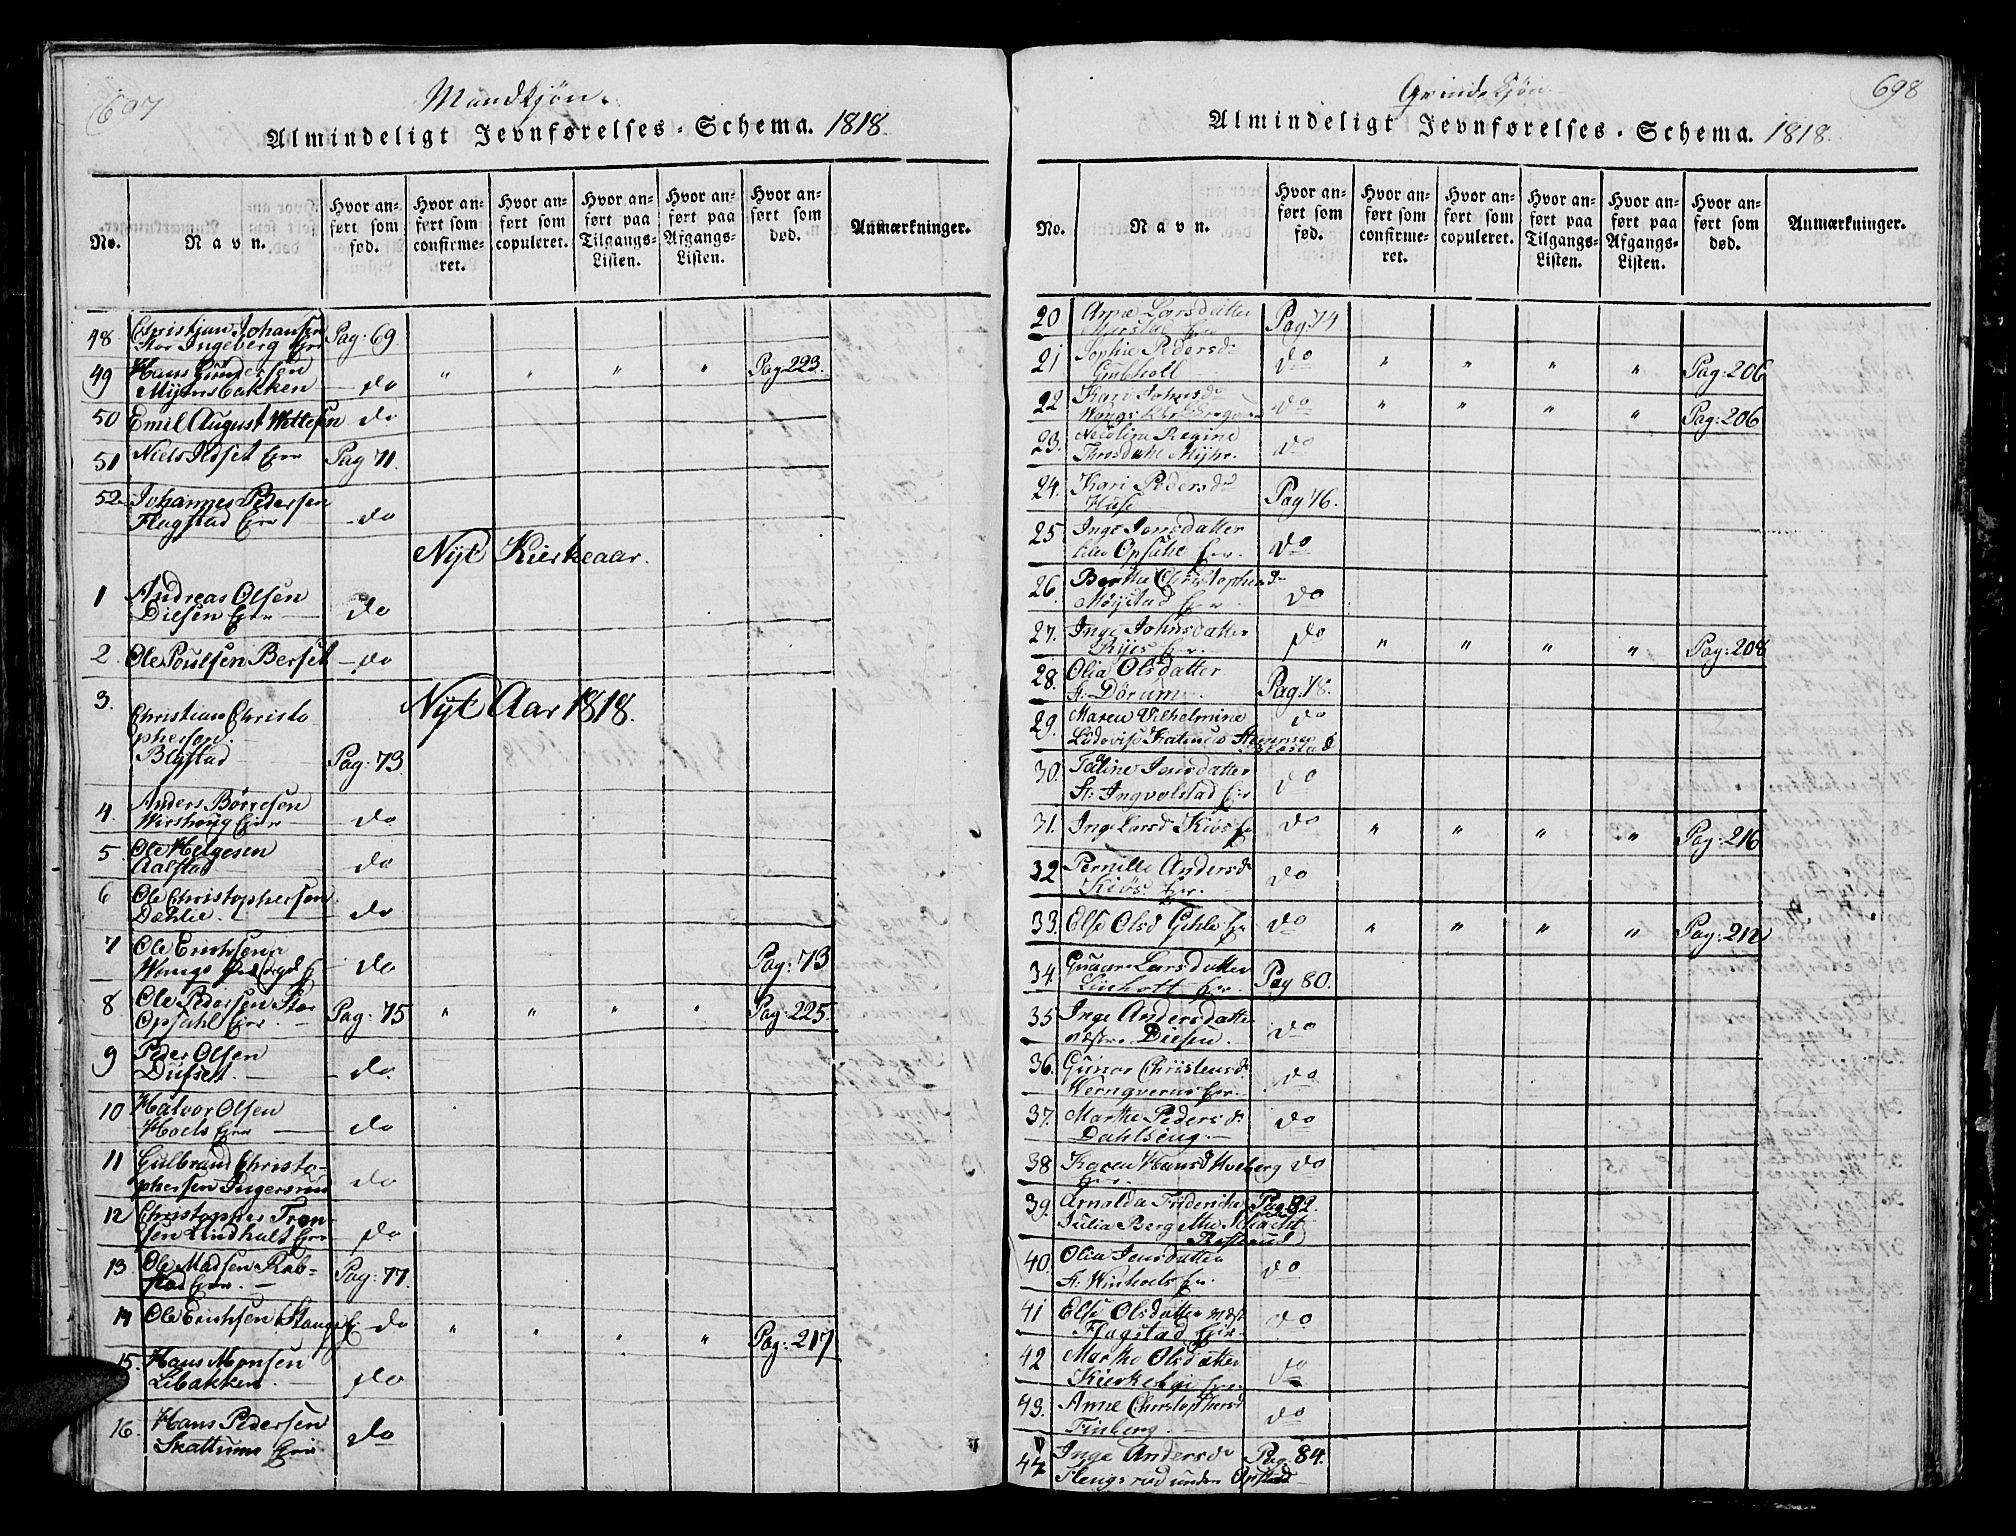 697
Mandkjøn.
Almindeligt Jevnførelses-Schema. 1818.
No.
Navn.
Hvor anført som fød.
Hvor anført som confirmeret.
Hvor anført som copuleret.
Hvor anført paa Tilgangs-Listen.
Hvor anført paa Afgangs-Listen.
Hvor anført som død.
Anmærkninger.
48 Christian Johansen
Stor Ingeberg Eje Pag: 69
49 Hans Gundersen
Myrsbakken do " " " " Pag 223.
50 Emil August Wettesen do
51 Niels Ilset Eje Pag 71.
52. Johannes Pedersen
Flagstad Eje do
Nyt Kierkeaar.
1 Andreas Olsen
Diesen Eje do
2 Ole Poulsen Berset do
Nyt Aar 1818.
3. Christian Christo
phersen
Blystad Pag: 73
4. Anders Börresen
Wirshoug Eje do
5. Ole Helgesen
Aalstad do
6 Ole Christophersen
Dæhlie. do
7 Ole Erichsen
Wangs do Pag: 73
8 Ole Pedersen Stor
Opsahl Eje Pag: 75 " " " " Pag: 225.
9 Peder Olsen
Diifset. do
10 Halvor Olsen
Hoels Eje do
11 Gulbrand Christo-
phersen Ingersrud do
12 Christopher Tron-
sen Lindholt Eje do
13 Ole Madsen Rab-
stad Eje. Pag: 77.
14 Ole Erichsen Stange do " " " " Pag: 217
15. Hans Monsen
Libakken. do
16. Hans Pedersen
Skattums Eje do
698
Qvindekjøn
Almindeligt Jevnførelses-Schema. 1818.
No.
Navn.
Hvor anført som fød.
Hvor anført som confirmeret.
Hvor anført som copuleret.
Hvor anført paa Tilgangs-Listen.
Hvor anført paa Afgangs-Listen.
Hvor anført som død.
Anmærkninger.
20 Anne Larsdatter
Eje Pag: 74
21 Sophie Pedersd
do " " " " Pag: 206
22 Kari Johnsd
Wangs do " " " " Pag: 206
23. Nicoline Regine
Myhr. do
24. Kari Pedersd
Huse Pag 76.
25. Inge Jensdatter
Opsahl Eje. do
26. Berthe Christophersd
Møystad Eje do
27. Inge Johnsdatter
Eje. do " " " " Pag: 208
28. Olia Olsdatter
St: Dörum Pag: 78.
29. Maren Vilhelmine
do
30. Taline Jensdatter
St: Ingvolstad Eje do
31. Inge Larsd Kiös Eje do " " " " Pag: 216
32 Pernille Andersd
Kiös Eje. do
33. Else Olsd Gihle Eje do " " " " Pag: 212
34. Gunor Larsdatter
Linholt Eje. Pag 80.
35 Inge Andersdatter
Diesen. do
36. Gunor Christensd
Wernqvernes Eje. do
37. Marthe Pedersd
Dahlseng. do
38 Karen Hansd Hveberg do
Eje.
39. Arnalda Friderichke Pag: 82.
Julia
40. Olia Jensdatter
St: Eje. do
41 Else Olsdatter
Flagstad Eje. do
42 Marthe Olsdatter
Kierkebye Eje do
43. Anne Christophersd
Finberg. do
44 Inge Andersd Pag: 84.
Slengsrud under